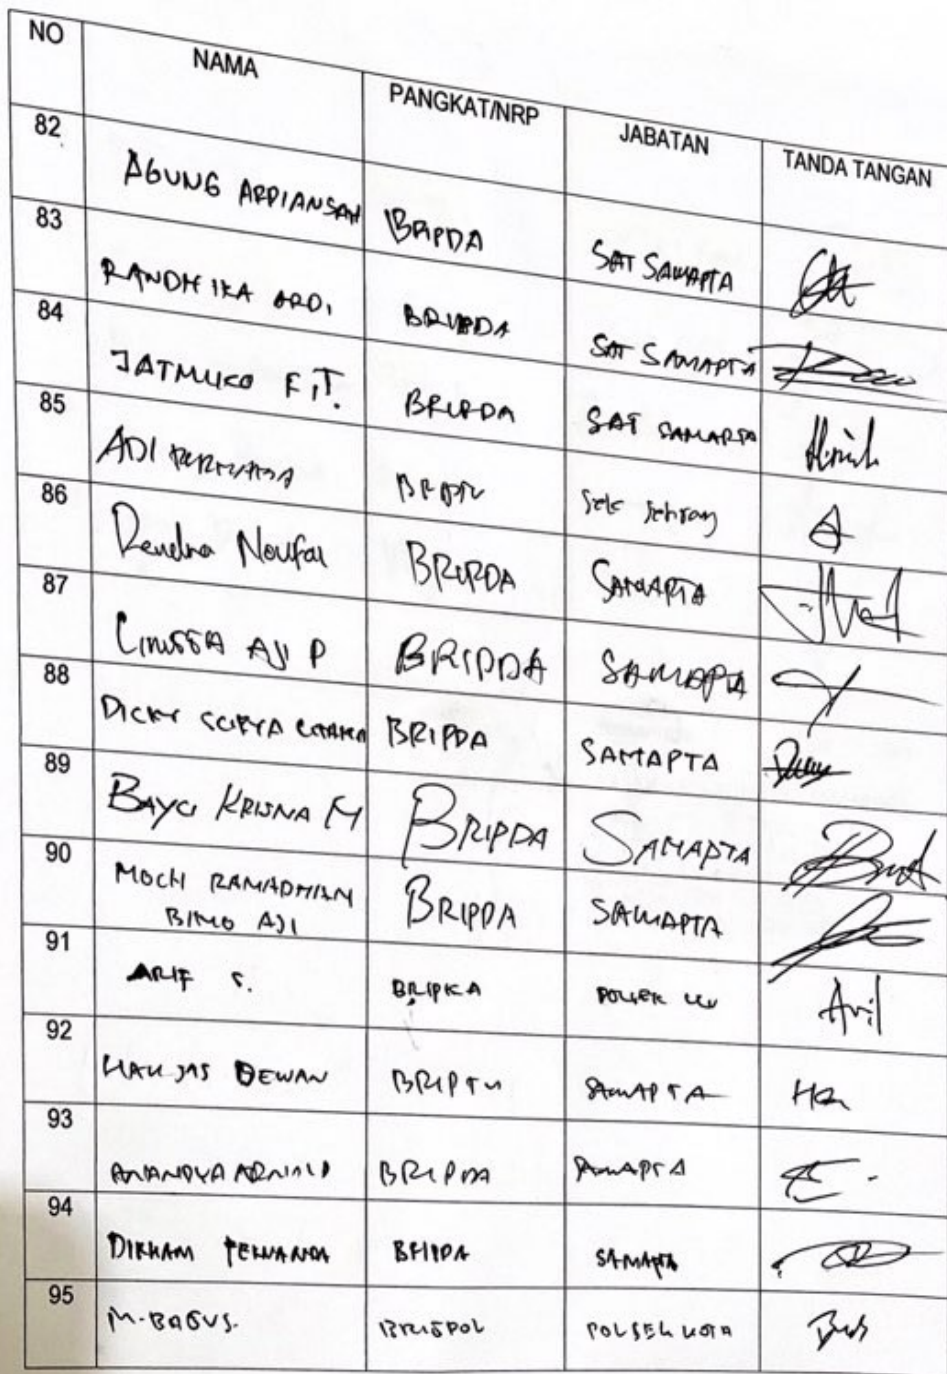 NO NAMA PANGKAT/NRP JABATAN TANDA TANGAN
82 AGUNG ARDIANSAH BRIPDA SAT SAMAPTA
83 RANDHIKA ARDI BRIPDA SAT SAMAPTA
84 JATMIKO F.T. BRIPDA SAT SAMAPTA
85 ADI PERMANA
86 Naufal BRIPDA SAMAPTA
87 AJI P BRIPDA SAMAPTA
88 DICKY SURYA BRIPDA SAMAPTA
89 BAYU KRISNA M BRIPDA SAMAPTA
90 MOCH RAMADHIAN
BIMO AJI BRIPDA SAMAPTA
91 ARIF S. BRIPKA POLSEK
92 DEWAN BRIPTU SAMAPTA
93 BRIPDA SAMAPTA
94 DIRHAM PERNANDA BRIPDA SAMAPTA
95 M. BAGUS. BRIGPOL POLSEK KOTA